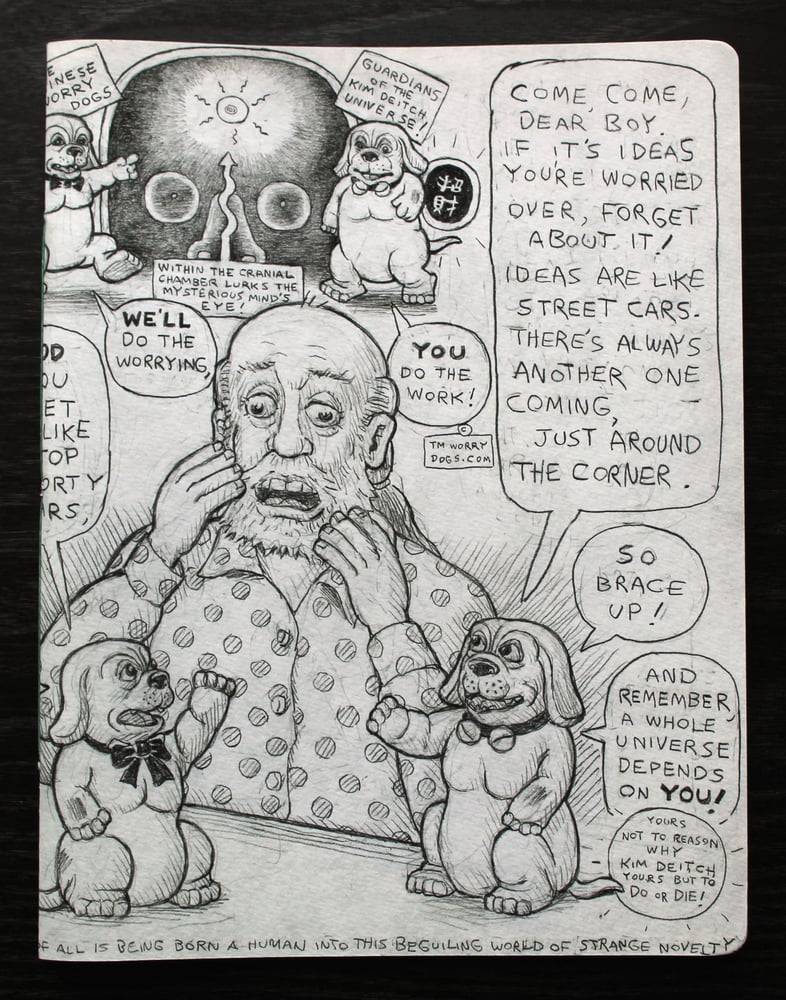 INESE
WORRY
DOGS
GUARDIANS
OF THE
KIM DEITCH
UNIVERSE!
招
財
COME, COME,
DEAR BOY.
IF IT'S IDEAS
YOU'RE WORRIED
OVER, FORGET
ABOUT IT!
IDEAS ARE LIKE
STREET CARS.
THERE'S ALWAYS
ANOTHER ONE
COMING,
JUST AROUND
THE CORNER.
WITHIN THE CRANIAL
CHAMBER LURKS THE
MYSTERIOUS MIND'S
EYE!
WE'LL
DO THE
WORRYING,
YOU
DO THE
WORK!
©
TM WORRY
DOGS.COM
OD
OU
ET
LIKE
TOP
ORTY
RS,
SO
BRACE
UP!
AND
REMEMBER,
A WHOLE
UNIVERSE
DEPENDS
ON YOU!
YOURS
NOT TO REASON
WHY
KIM DEITCH
YOURS BUT TO
DO OR DIE!
F ALL IS BEING BORN A HUMAN INTO THIS BEGUILING WORLD OF STRANGE NOVELTY